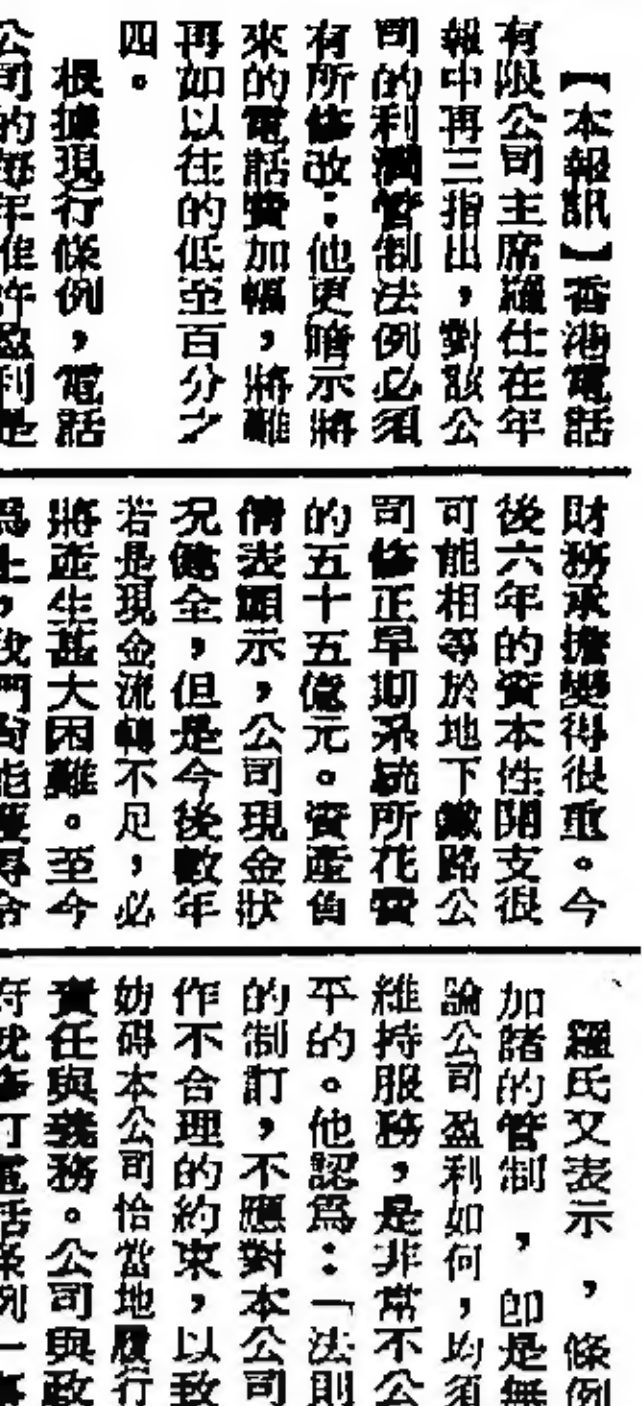 【本報訊】香港電話
有限公司主席羅仕在年
報中再三指出，對該公
司的利潤管制法例必須
有所修改：他更暗示將
來的電話費加幅，將難
再如以往的低至百分之
四。
根據現行條例，電話
公司的每年准許盈利是
財務承擔變得很重。今
後六年的資本性開支很
可能相等於地下鐵路公
司修正早期系統所花費
的五十五億元。資產負
債表顯示，公司現金狀
況健全，但是今後數年
若是現金流轉不足，必
將產生甚大困難。至今
爲止，我們尚能獲得合
羅氏又表示，條例
加諸的管制，卽是無
論公司盈利如何，均須
維持服務，是非常不公
平的。他認爲：「法則
的制訂，不應對本公司
作不合理的約束，以致
妨碍本公司恰當地履行
責任與義務。公司與政
府就修訂電話條例一事